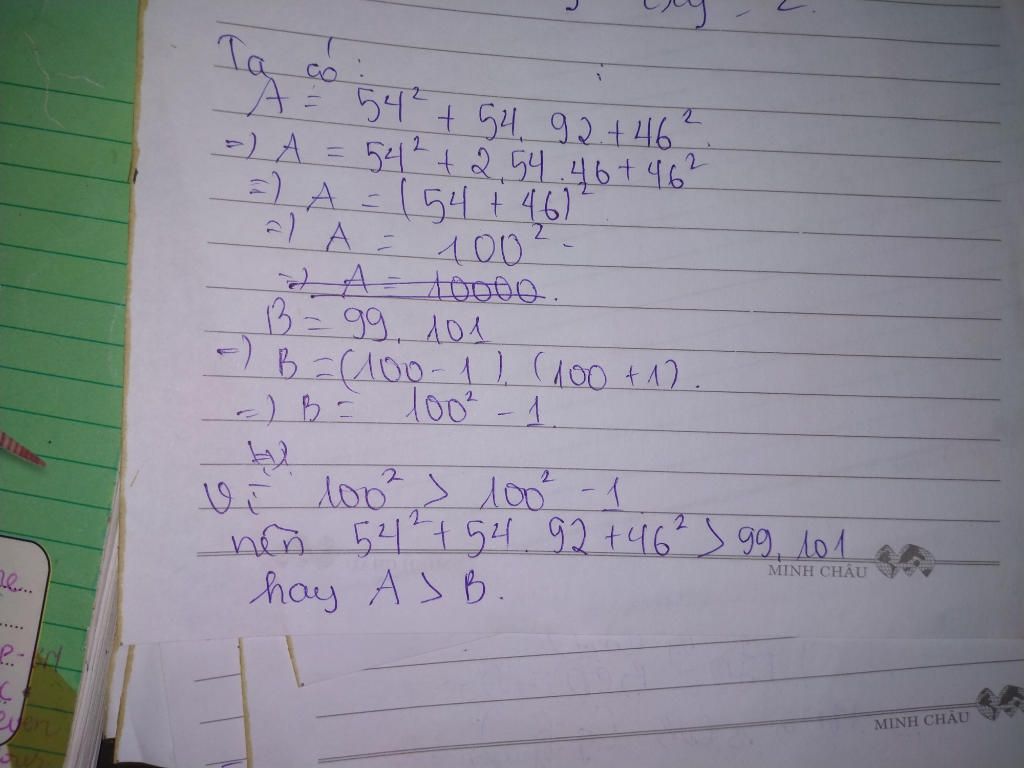 Ta có:
A = 54² + 54.92 + 46².
=) A = 54² + 2.54.46 + 46²
=) A = (54 + 46)²
=) A = 100²
=) A = 10000.
B = 99.101
=) B = (100 - 1).(100 + 1).
=) B = 100² - 1
Vì 100² > 100² - 1
nên 54² + 54.92 + 46² > 99.101
MINH CHÂU
hay A > B.
MINH CHÂU